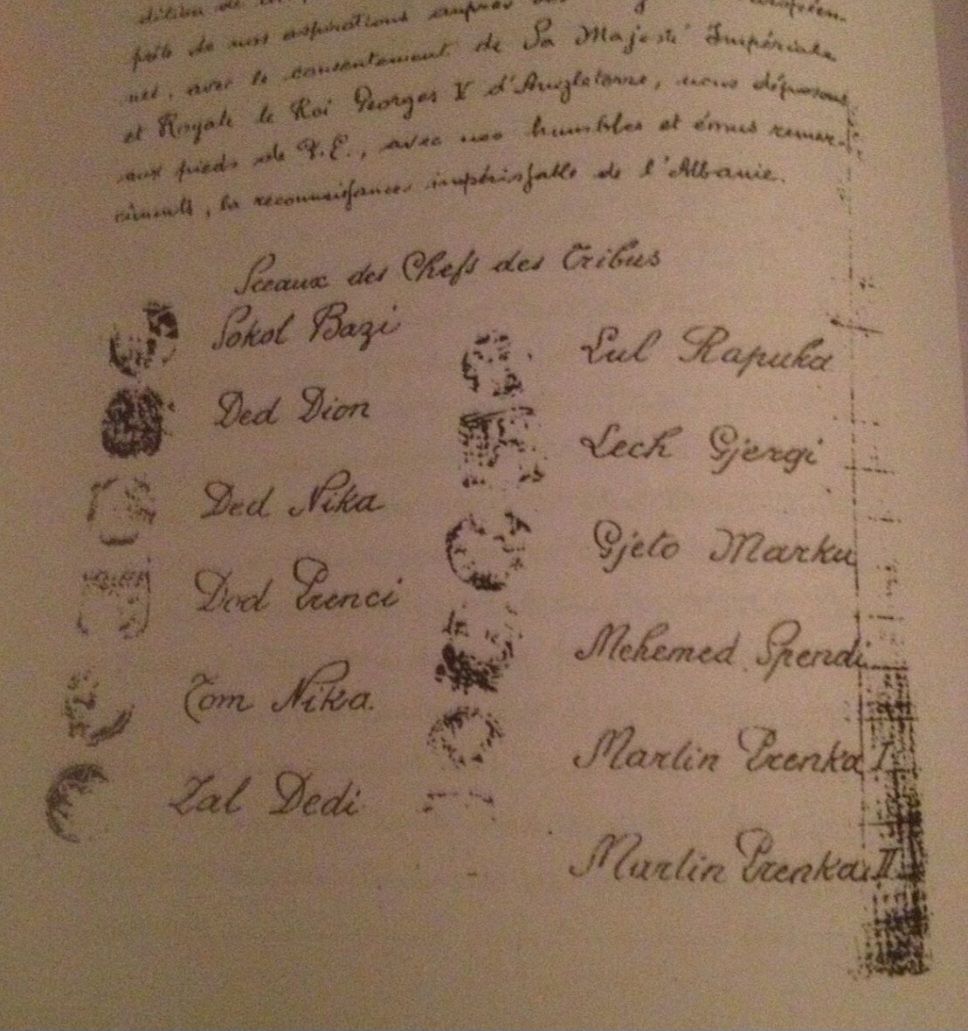 dition de
pôts de nos aspirations auprès
nes, avec le consentement de Sa Majesté Impériale
et Royale le Roi Georges V d'Angleterre, nous déposons
aux pieds de V.E., avec nos humbles et émus remer-
ciments, la reconnaissances impérissable de l'Albanie.
Sceaux des Chefs des Tribus
Sokol Bazi
Ded Dion
Ded Nika
Dod Prenci
Tom Nika.
Zal Dedi
Lul Rapuka
Lech Gjergi
Gjeto Marku
Mehemed Spendi
Martin Prenka I
Martin Prenka II